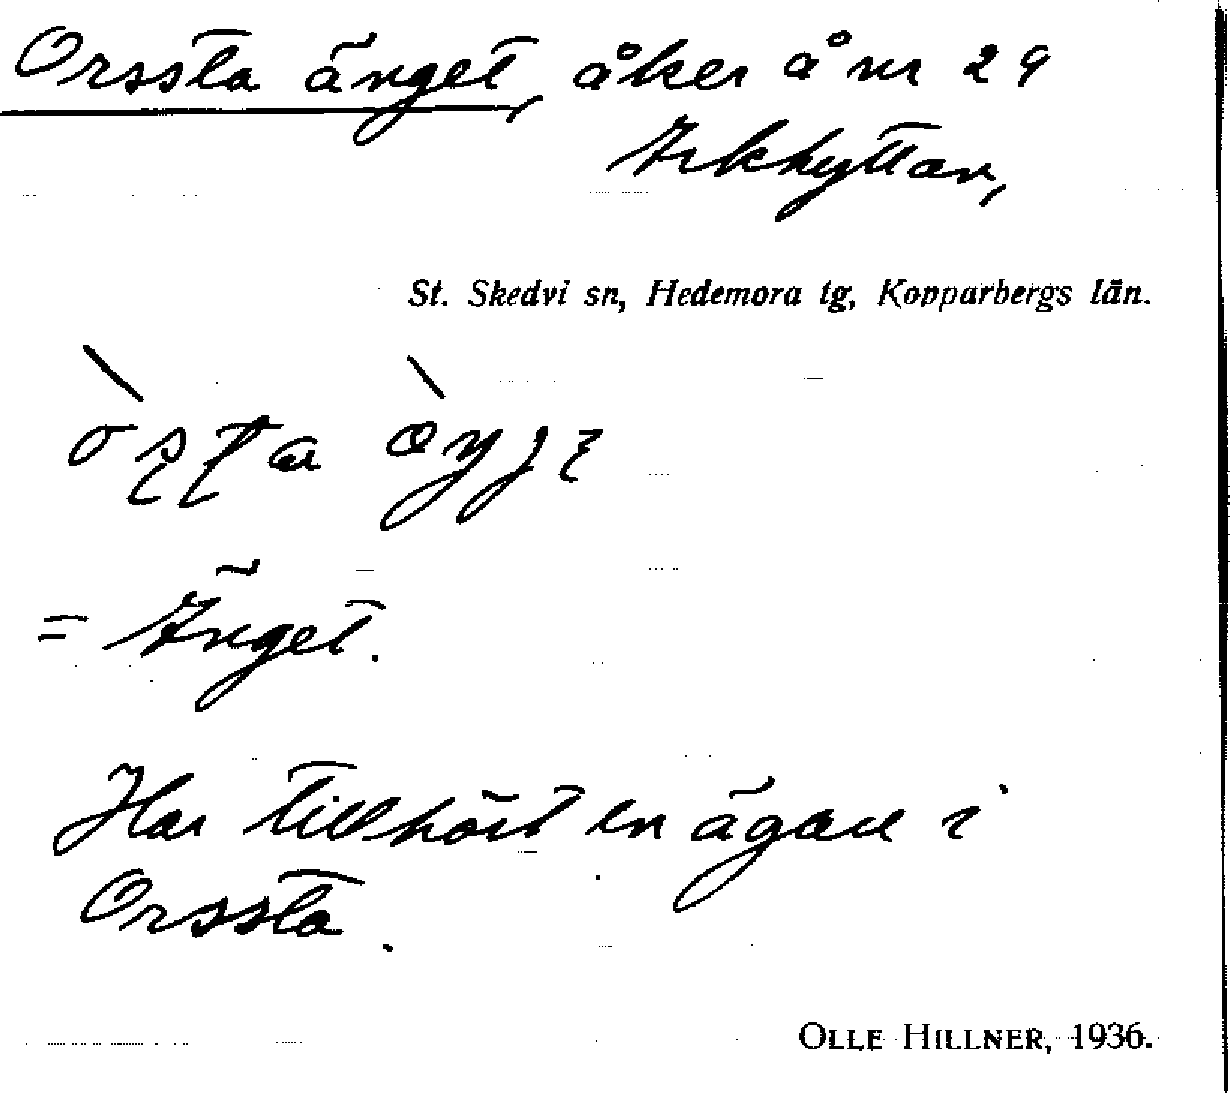 Orssta änget, åker å nr 29
Arkhyttan,
St. Skedvi sn, Hedemora tg, Kopparbergs län.
= Änget.
Har tillhört en ägare i
Orssta.
OLLE HILLNER, 1936.